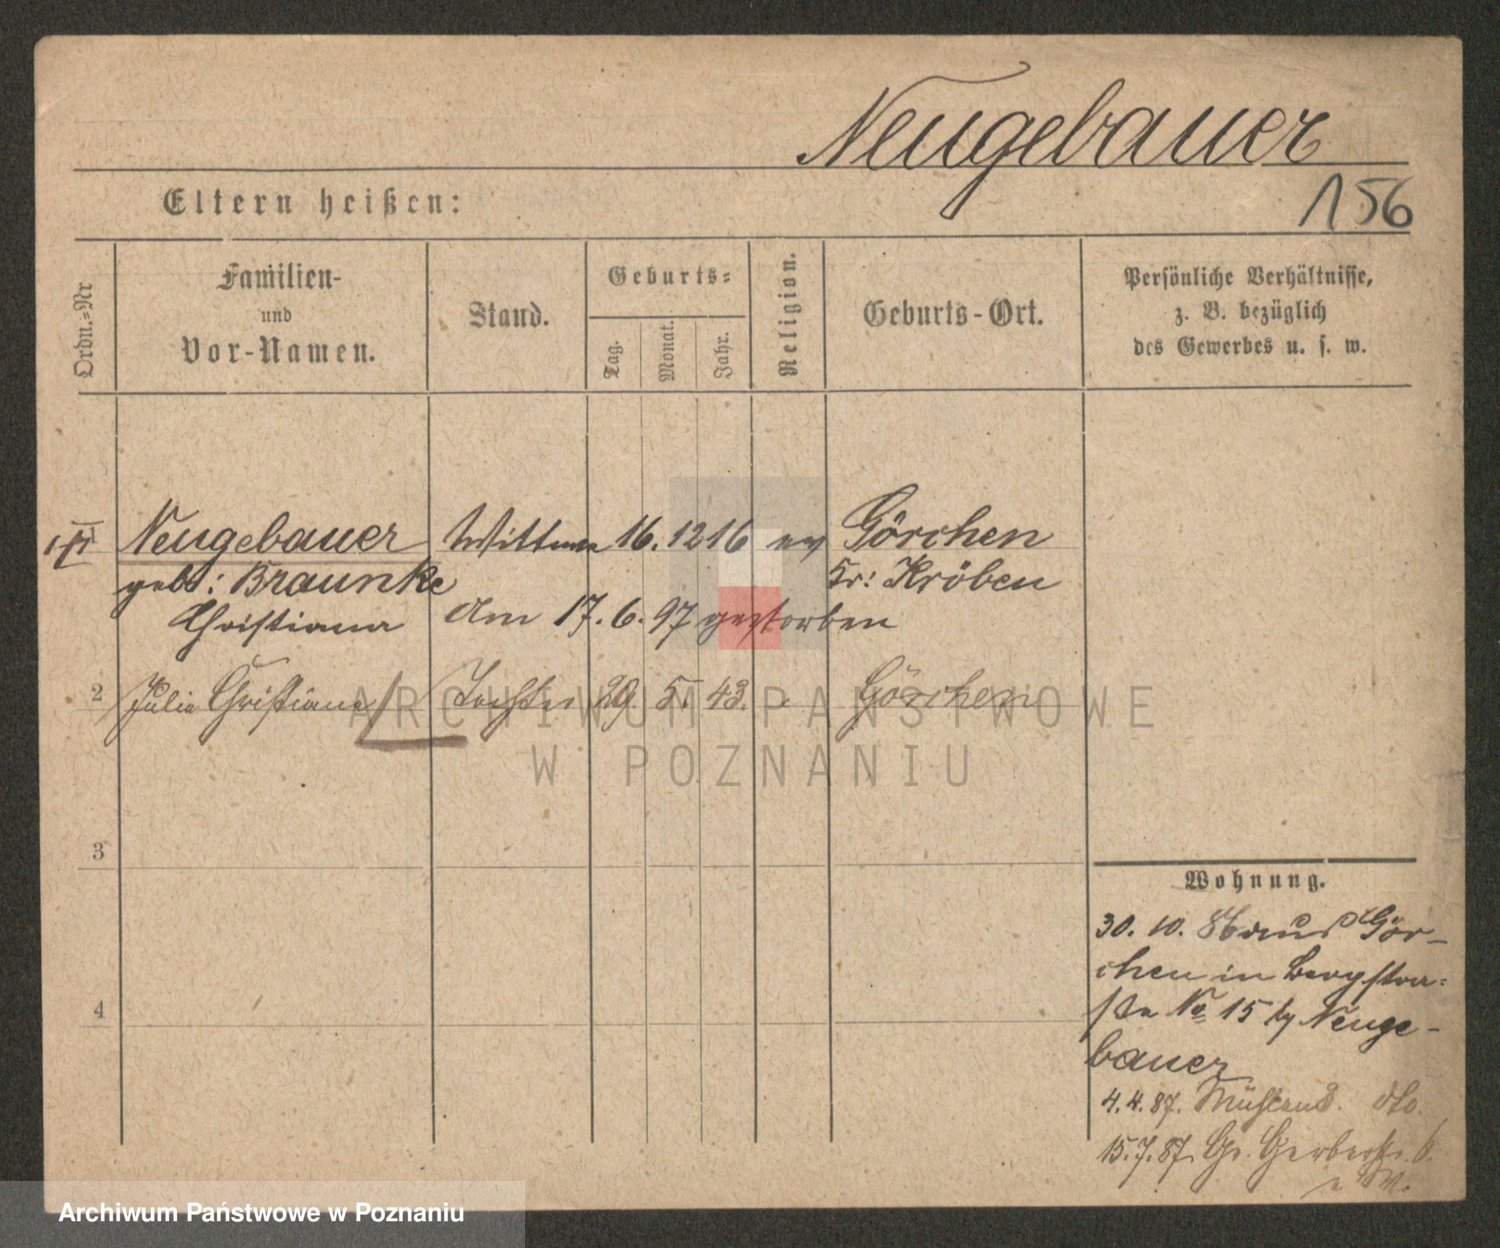 Neugebauer
Eltern heißen:
156
Ordn.=Nr
Familien-
und
Vor-Namen.
Stand.
Geburts=
Tag.
Monat.
Jahr.
Religion.
Geburts-Ort.
Persönliche Verhältnisse,
z. B. bezüglich
des Gewerbes u. s. w.
Neugebauer Wittwe 16. 12 16 ev Görchen
geb: Braunke Kr: Kröben
Christiana Am 17. 6. 97 gestorben
2 Julie Christiana Tochter 29. 5. 43. Görchen
ARCHIWUM PAŃSTWOWE
W POZNANIU
3
4
Wohnung.
30. 10. 86 aus Gör-
chen in Bergstra-
ße No 15 by Neuge-
bauer
4. 4. 87. Mühlend. dto.
15. 7. 87. Gr. Gerberstr.
Archiwum Państwowe w Poznaniu